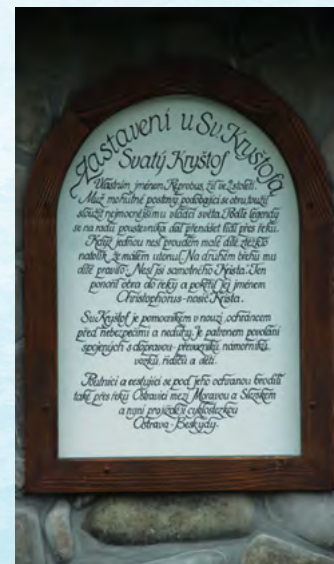 Zastavení u Sv. Kryštofa
Svatý Kryštof
Vlastním jménem Reprobus, žil ve 3. století.
Muž mohutné postavy podobající se obru, toužil
sloužit nejmocnějšímu vládci světa. Podle legendy
se na radu poustevníka dal přenášet lidi přes řeku.
Když jednou nesl proudem malé dítě, ztěžklo
natolik, že málem utonul. Na druhém břehu mu
dítě pravilo: Nesl jsi samotného Krista. Ten
ponořil obra do řeky a pokřtil jej jménem
Christophorus - nosič Krista.
Sv. Kryštof je pomocníkem v nouzi, ochráncem
před nebezpečími a neduhy. Je patronem povolání
spojených s dopravou - převozníků, námořníků,
vozků, řidičů a dětí.
Poutníci a cestující se pod jeho ochranou brodili
také přes řeku Ostravici mezi Moravou a Slezskem
a nyní projíždějí cyklostezkou
Ostrava - Beskydy.